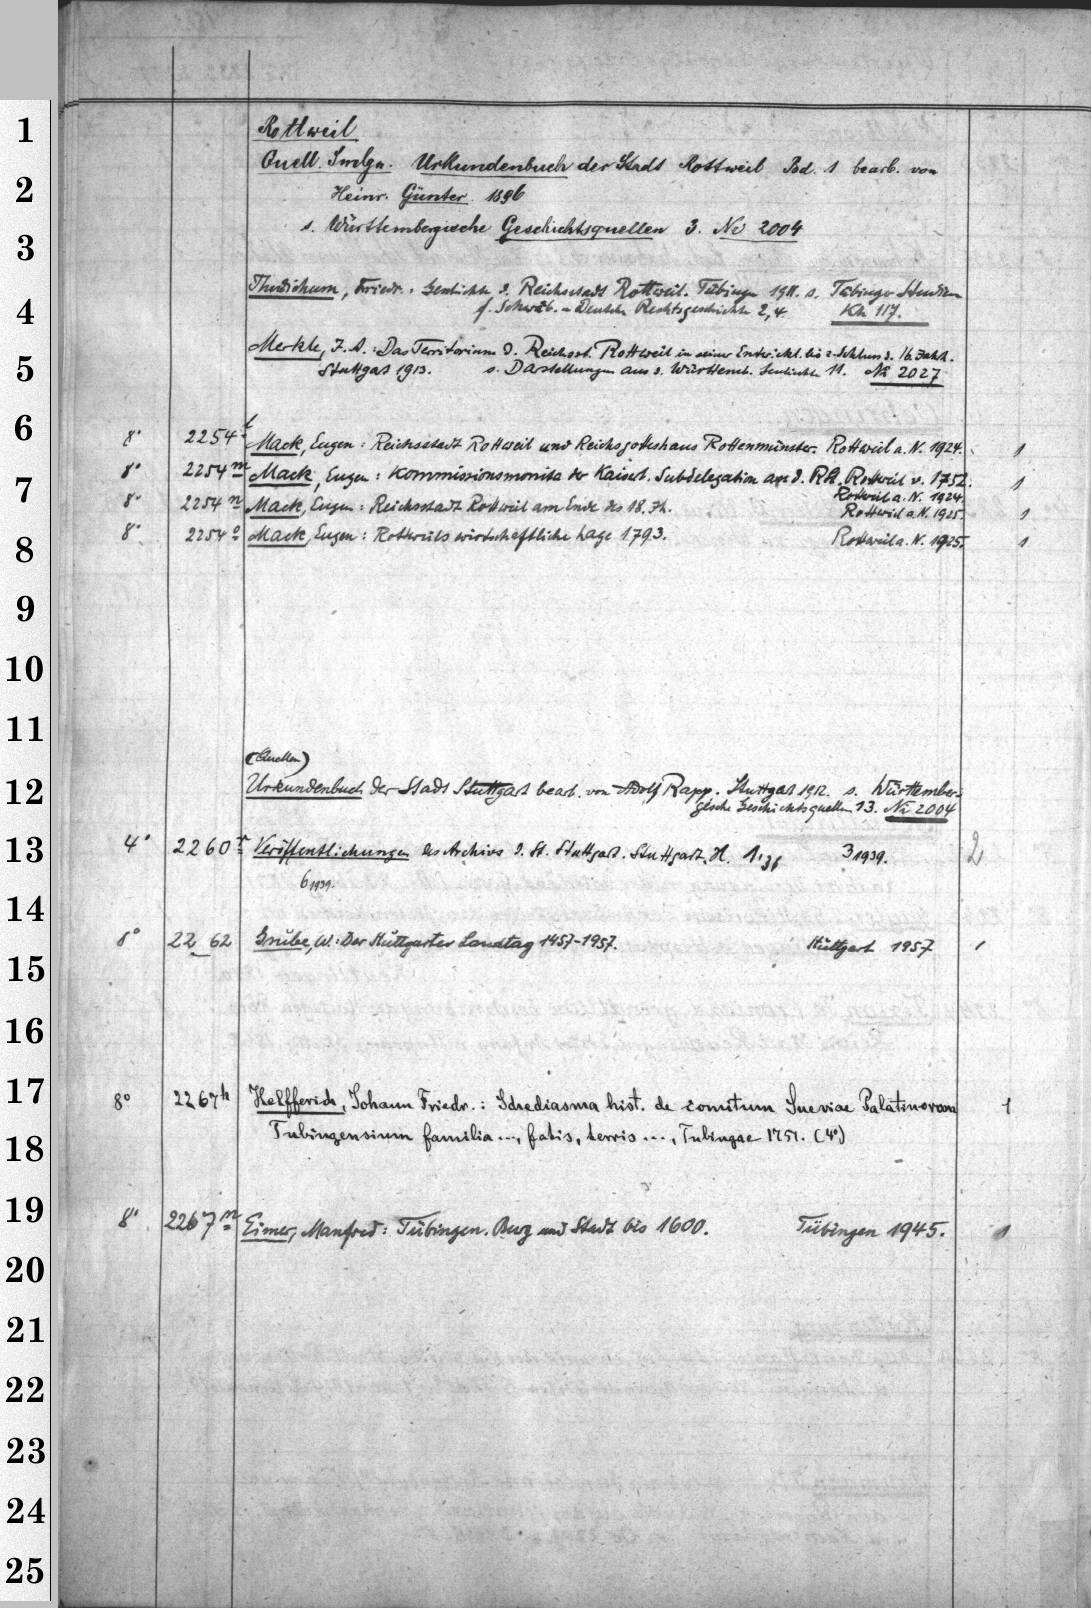 1
Rottweil
Quell. Smlgn. Urkundenbuch der Stadt Rottweil Bd. 1 bearb. von
2
Heinr. Günter 1896
3
s. Württembergische Geschichtsquellen 3. Ne 2004
Thudichum, Friedr.: Geschichte d. Reichsstadt Rottweil. Tübingen 1911. s. Tübinger Studien
4
f. Schwäb.-Deutsche Rechtsgeschichte 2,4. Kh 117.
Merkle, J. A.: Das Territorium d. Reichsst. Rottweil in seiner Entwickl. bis z. Schluss d. 16. Jahrh.
5
Stuttgart 1913. s. Darstellungen aus d. Württemb. Geschichte 11. Ne 2027
6
8° 2254 l Mack, Eugen: Reichsstadt Rottweil und Reichsgotteshaus Rottenmünster. Rottweil a. N. 1924. 1
8° 2254 m Mack, Eugen: Kommissionsmonita der Kaiserl. Subdelegation an d. R. Rottweil v. 1752. 1
7
Rottweil a. N. 1924.
8° 2254 n Mack, Eugen: Reichsstadt Rottweil am Ende des 18. Jh. Rottweil a. N. 1925 1
8° 2254 o Mack, Eugen: Rottweils wirtschaftliche Lage 1793. Rottweil a. N. 1925. 1
8
9
10
11
(Quellen)
12
Urkundenbuch der Stadt Stuttgart bearb. von Adolf Rapp. Stuttgart 1912. s. Württember-
gische Geschichtsquellen 13. Ne 2004
13
4° 2260 r Veröffentlichungen des Archivs d. St. Stuttgart. Stuttgart. H. 1, 3 1939. 2
6 1939.
14
8° 2262 Grube, W.: Der Stuttgarter Landtag 1457-1957. Stuttgart 1957 1
15
16
17
8° 2267 h Helfferich, Johann Friedr.: Schediasma hist. de comitum Sueviae Palatinorum 1
Tubingensium familia ..., fatis, terris ..., Tubingae 1751. (4°)
18
19
8° 2267 m Eimer, Manfred: Tübingen. Burg und Stadt bis 1600. Tübingen 1945. 1
20
21
22
23
24
25